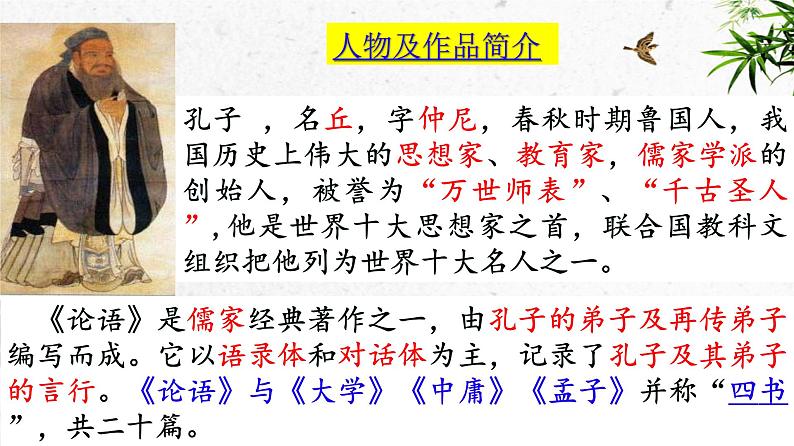 人物及作品简介
孔子 ，名丘，字仲尼，春秋时期鲁国人，我
国历史上伟大的思想家、教育家，儒家学派的
创始人，被誉为“万世师表”、“千古圣人
”,他是世界十大思想家之首，联合国教科文
组织把他列为世界十大名人之一。
《论语》是儒家经典著作之一，由孔子的弟子及再传弟子
编写而成。它以语录体和对话体为主，记录了孔子及其弟子
的言行。《论语》与《大学》《中庸》《孟子》并称“四书
”，共二十篇。